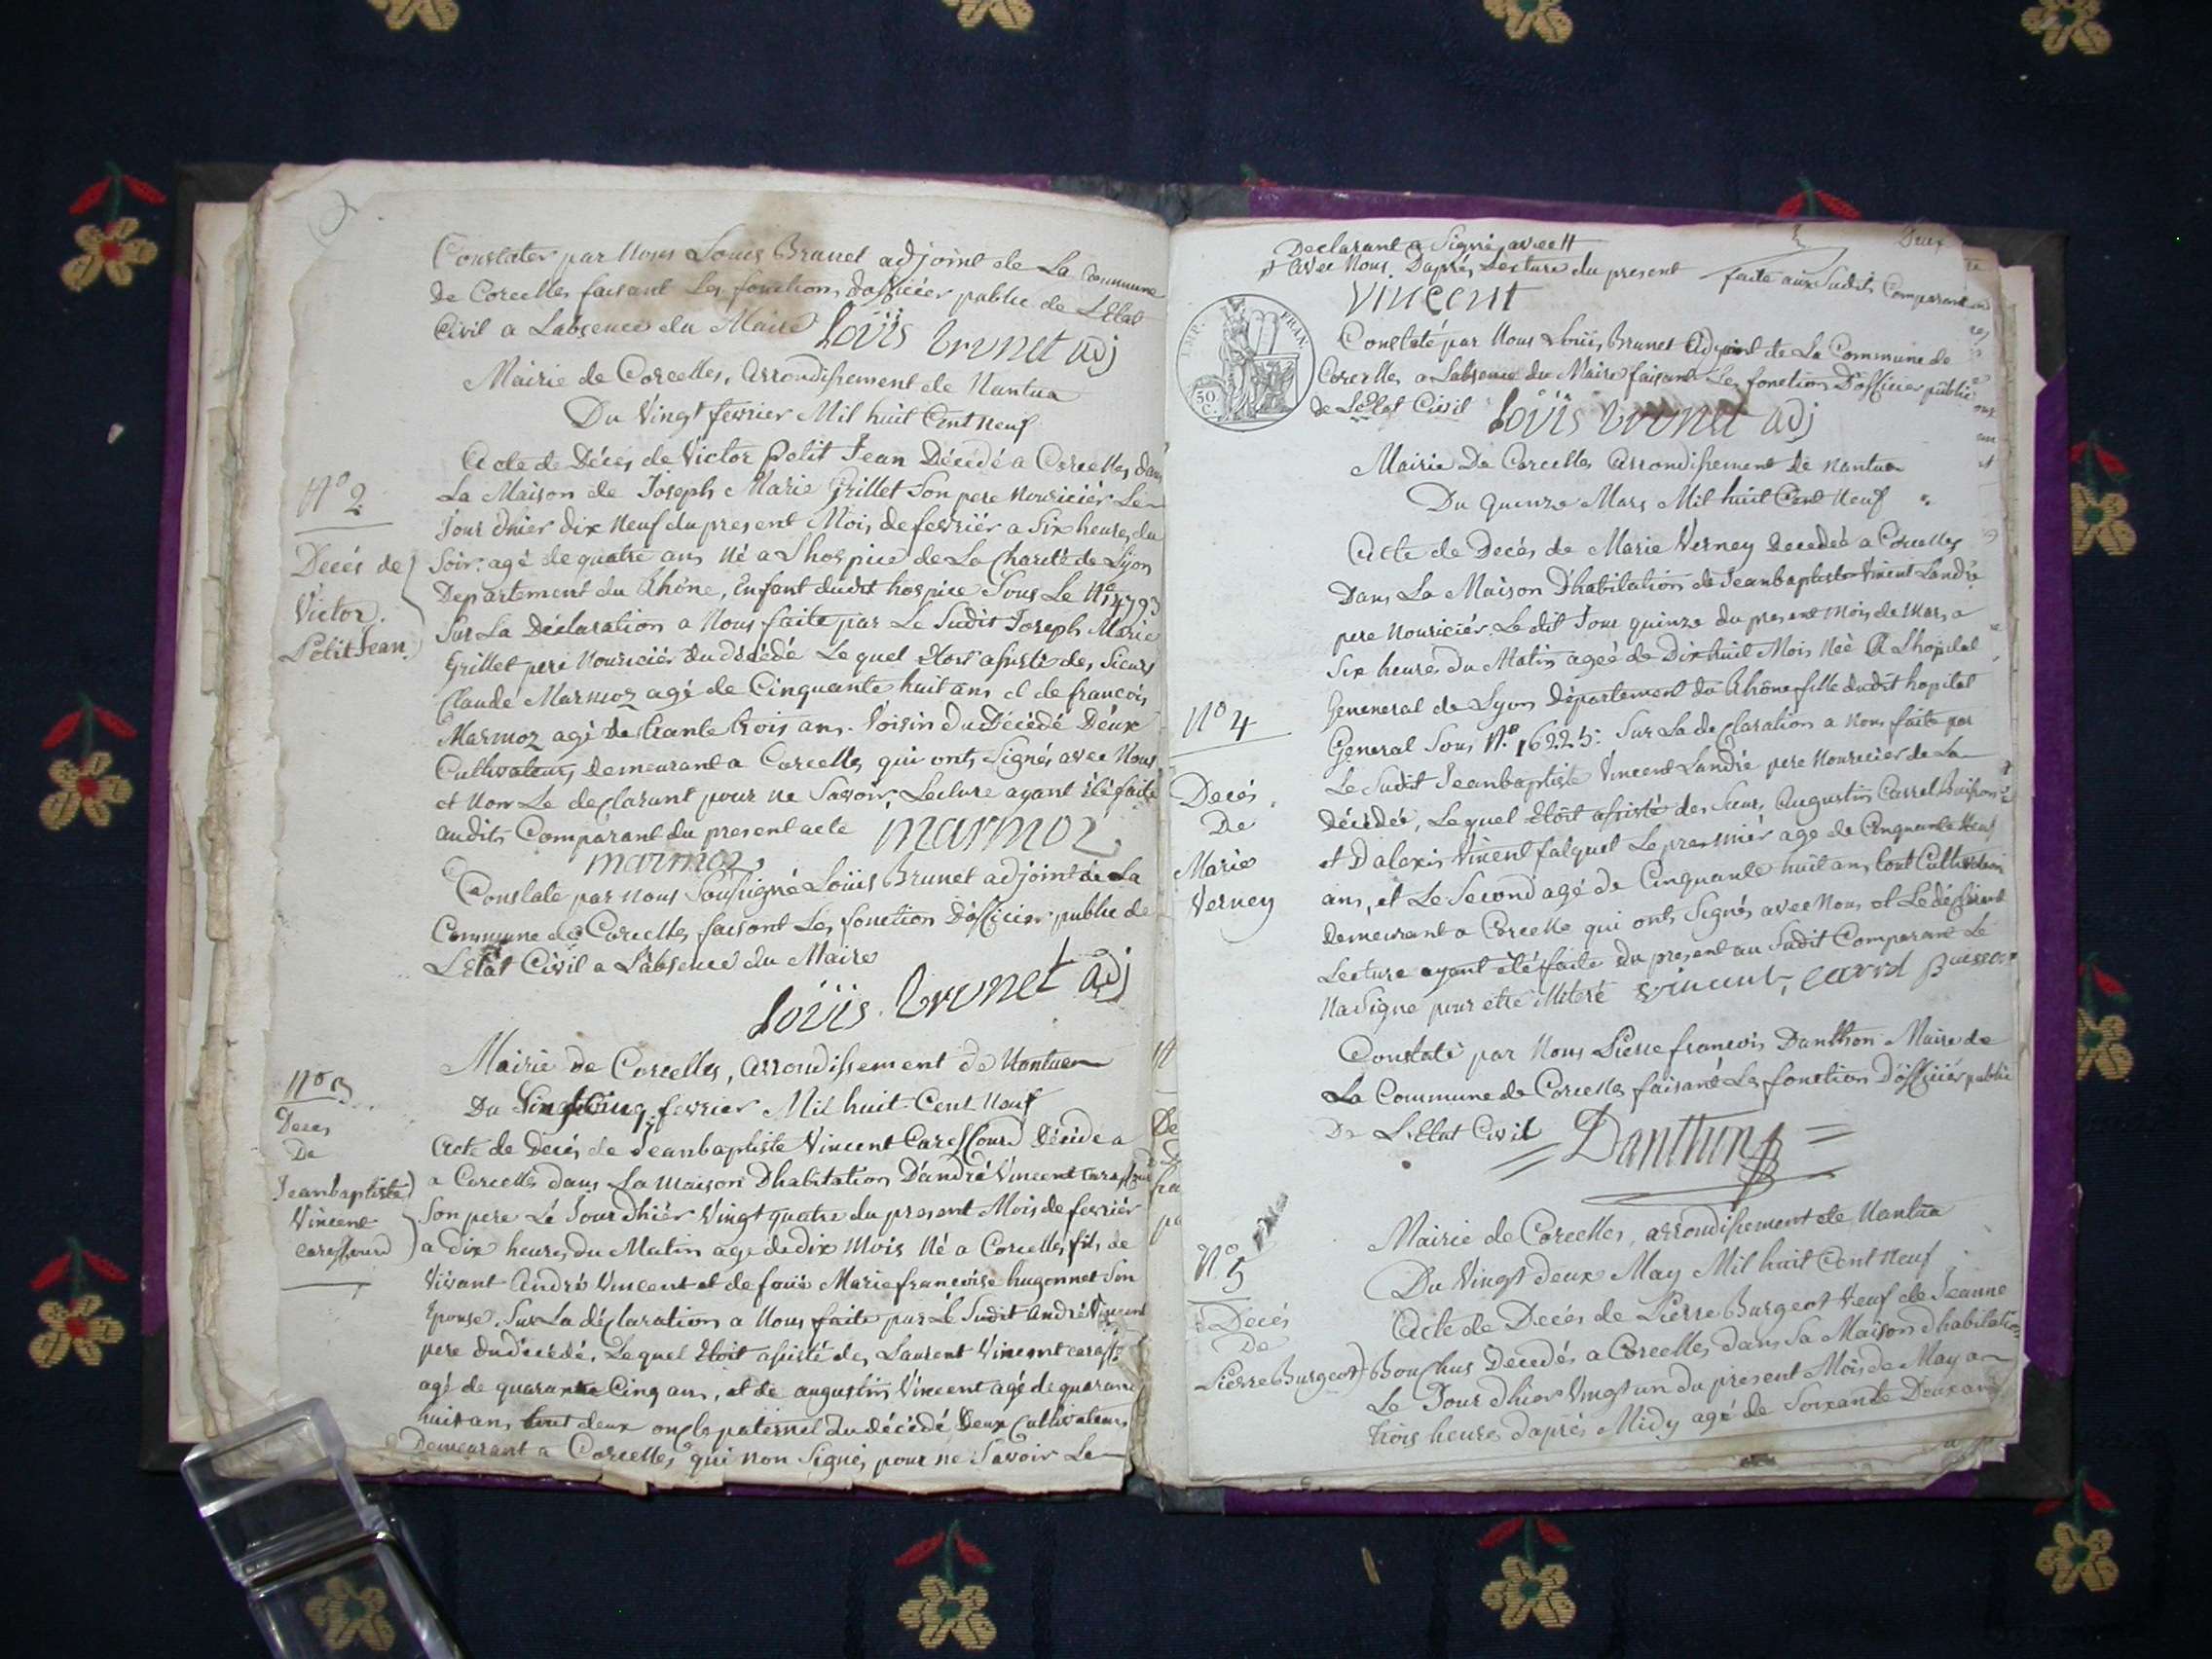 Constater par Nous Louis Brunet adjoint de La Commune
de Corcelles faisant Les fonctions d'officier public de L'Etat
Civil a Labsence du Maire Loüis brunet adj
Mairie de Corcelles, arrondissement de Nantua
Du Vingt fevrier Mil huit Cent neuf
N° 2
Decés de
Victor
Petit Jean
Acte de Décés de Victor Petit Jean Décédé a Corcelles dans
La Maison de Joseph Marie Grillet Son pere Nouriciér Le
Jour d'hier dix Neuf du present Mois de fevriér a Six heures du
Soir, agé de quatre ans Né a Lhospice de La Charité de Lyon
Departement du Rhône, Enfant dudit hospice Sous Le N° 14793
Sur La Déclaration a Nous faite par Le Sudit Joseph Marie
Grillet pere Nouriciér du décédé Le quel Etoit assisté des Sieurs
Claude Marmoz agé de Cinquante huit ans et de francois
Marmoz agé de trante trois ans. Voisin du Décédé Deux
Cultivateurs demeurant a Corcelles qui onts Signés avec Nous
et Non Le declarant pour ne Savoir, Lecture ayant été faite
audits Comparant du present acte marmoz
marmoz
Constate par nous Soussigné Loüis Brunet adjoint de La
Commune de Corcelles faisont Les fonction D'officier public de
L'Etat Civil a L'absence du Maire
Loüis brunet adj
N° 3
Deces
De
Jeanbaptiste
Vincent
Mairie de Corcelles, arrondissement de Nantua
Du Vingt Cinq fevrier Mil huit Cent Neuf
Acte de Decés de Jeanbaptiste Vincent Décéde a
a Corcelles dans La Maison Dhabitation D'andré Vincent
Son pere Le Jour d'hiér Vingt quatre du present Mois de fevriér
a dix heures du Matin agé de dix Mois Né a Corcelles fils de
Vivant André Vincent et de fouë Marie francoise hugonnet Son
Epouse. Sur La déclaration a Nous faite par Le Sudit André Vincent
pere du décédé. Lequel Etoit assisté des Laurent Vincent
agé de quarante Cinq ans, et de augustin Vincent agé de quarante
huit ans tout deux oncle paternel du décédé Deux Cultivateurs
Demeurant a Corcelles qui non Signés pour ne Savoir Le
Deux
Declarant a Signé avec
avec Nous. Daprés Lecture du present faite aux Sudits Comparant
Vincent
IMP. FRAN.
50
C.
Constaté par Nous Louis Brunet Adjoint de La Commune de
Corcelles a Labsence du Maire faisant Les fonction D'officier public
de L'Etat Civil Loüis brunet adj
Mairie De Corcelles arrondissement de Nantua
Du quinze Mars Mil huit Cent Neuf
N° 4
Decés
De
Marie
Verney
Acte de Decés de Marie Verney Decedeé a Corcelles
Dans La Maison D'habitation de Jeanbaptiste Vincent Landré
pere Nouriciér. Le dit Jour quinze du present Mois de Mars a
Six heures du Matin ageé de Dix huit Mois Née A Lhopital
Geneneral de Lyon Département du Rhône fille dudit hopital
General Sous N° 16225. Sur La declaration a Nous faite par
Le Sudit Jeanbaptiste Vincent Landré pere Nouricier de La
décédée, Lequel Etoit assisté des Sieurs Augustin Carrel
et D'alexis Vincent falquet Le premiér age de Cinquante Neuf
ans, et Le Second agé de Cinquante huit ans tout Cultivateurs
demeurant a Corcelle qui onts Signés avec Nous et Le déclarant
Lecture ayant été faite du present au Sudit Comparant Le
Na Signe pour etre vincent, carrel
Constaté par Nous Pierre francois Danthon Maire de
La Commune de Corcelles faisant Les fonction D'officiér public
De L'Etat Civil Danthon
N° 5
Decés
De
Pierre Burgeot
Mairie de Corcelles, arrondissement de Nantua
Du Vingt deux May Mil huit Cent Neuf
Acte de Decés de Pierre Burgeot Veuf de Jeanne
Decedés a Corcelles dans Sa Maison d'habitation
Le Jour d'hier Vingt un du present Mois de May a
trois heures daprés Midy agé de Soixante Deux ans